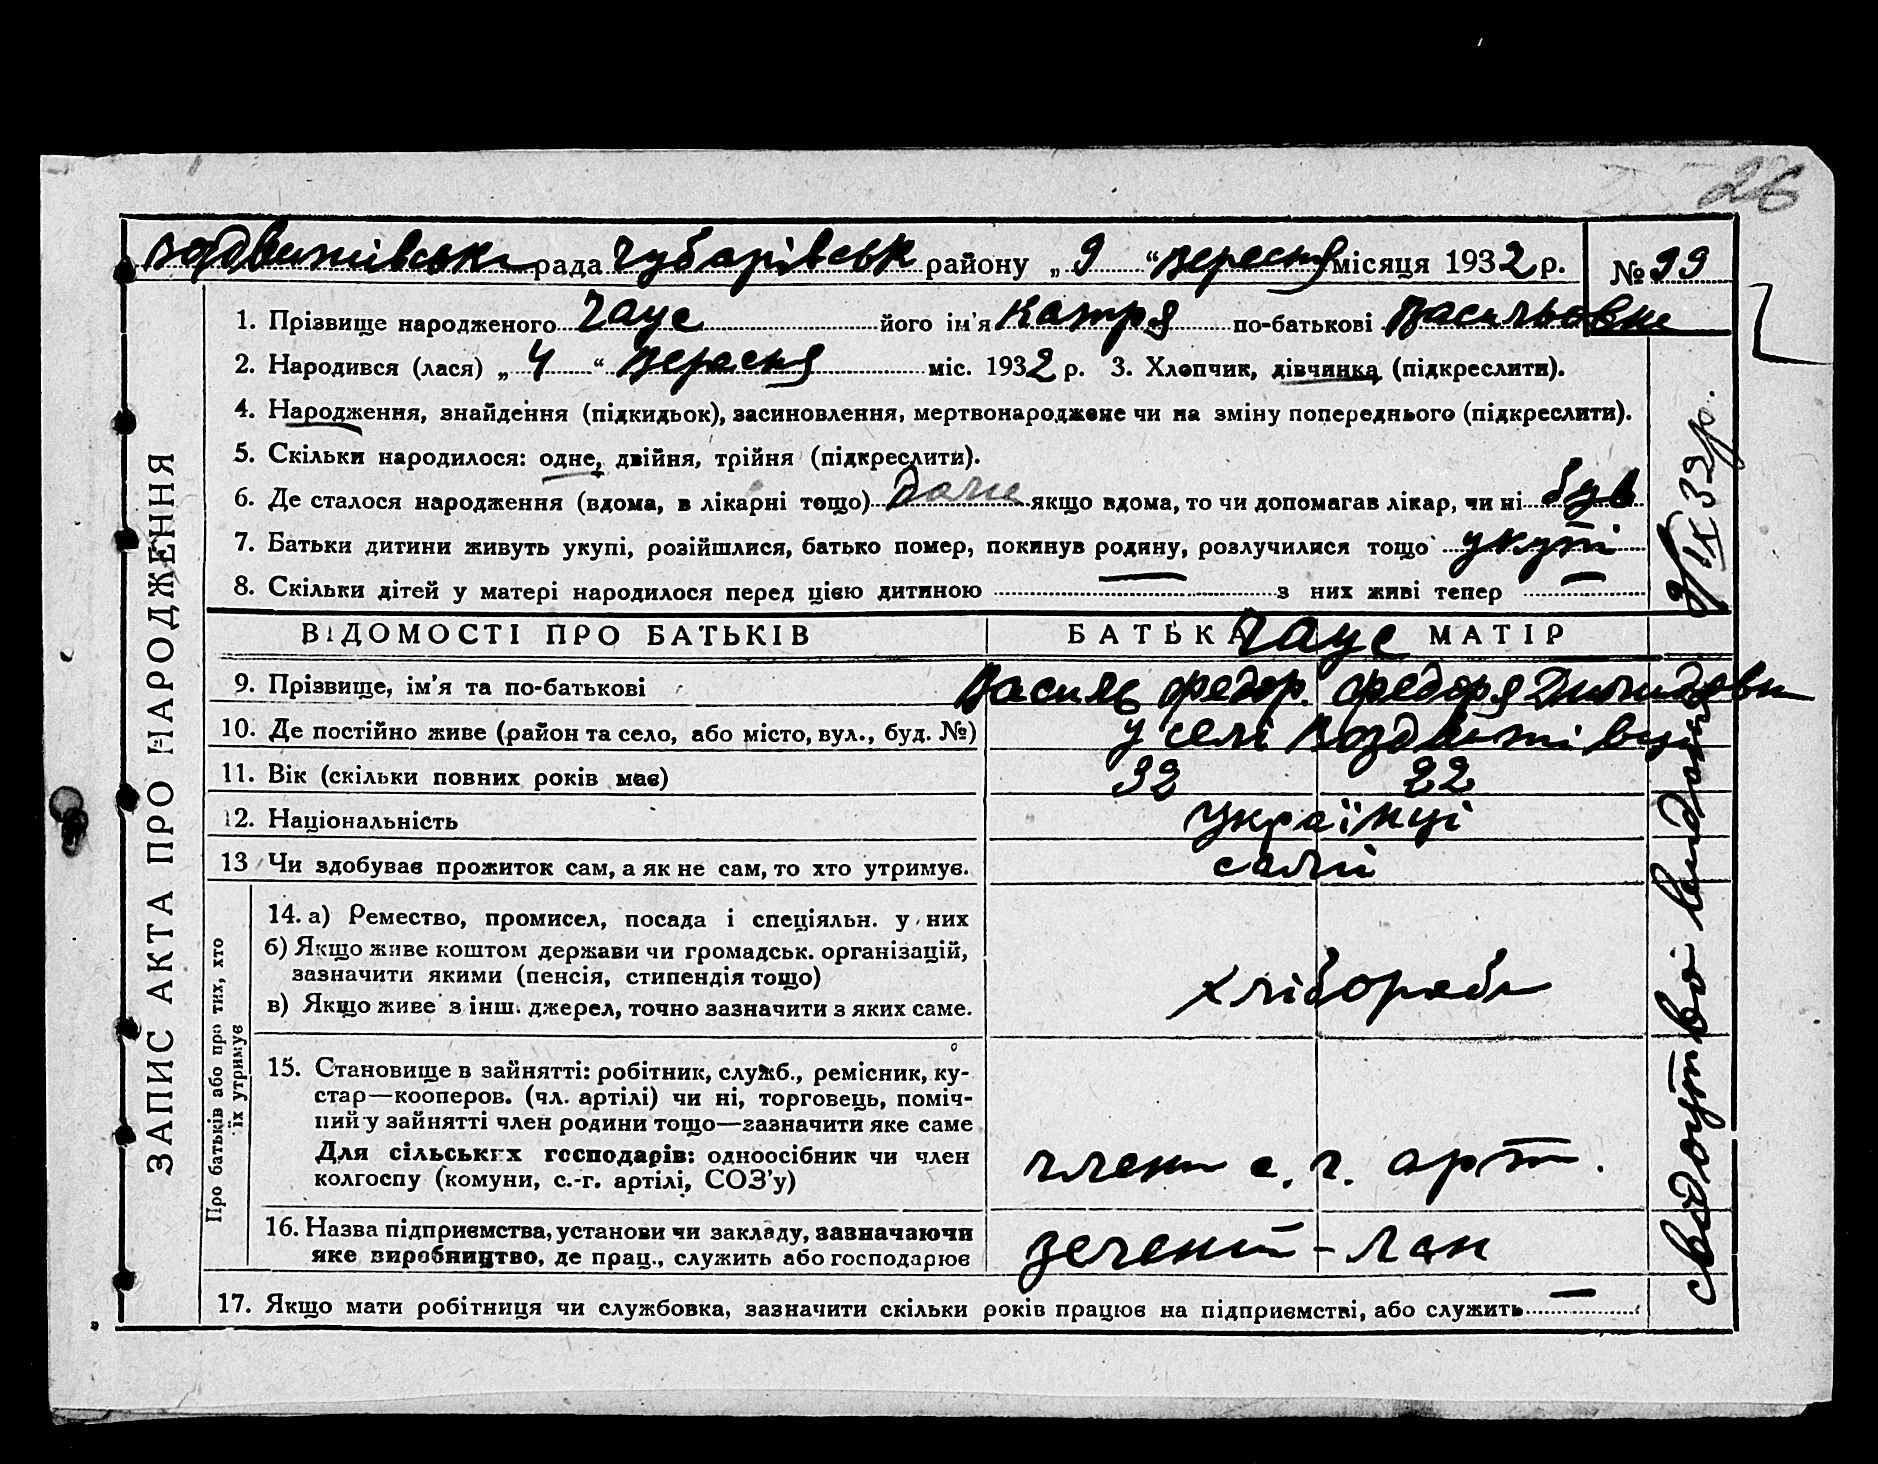 26
рада Чубарівськ району „ 9 “ вересня місяця 1932 р. № 99
1. Прізвище народженого Чаус його ім’я Катря по-батькові Васильовна
2. Народився (лася) „ 4 “ вересня міс. 1932 р. 3. Хлопчик, дівчинка (підкреслити).
4. Народження, знайдення (підкидьок), засиновлення, мертвонароджене чи на зміну попереднього (підкреслити).
5. Скільки народилося: одне, двійня, трійня (підкреслити).
6. Де сталося народження (вдома, в лікарні тощо) якщо вдома, то чи допомагав лікар, чи ні був
7. Батьки дитини живуть укупі, розійшлися, батько помер, покинув родину, розлучилися тощо укупі
8. Скільки дітей у матері народилося перед цією дитиною — з них живі тепер —
ВІДОМОСТІ ПРО БАТЬКІВ БАТЬКА МАТІР
Чаус
9. Прізвище, ім’я та по-батькові Василь Федор. Федора
10. Де постійно живе (район та село, або місто, вул., буд. №) у селі Воздвижівці
11. Вік (скільки повних років має) 32 22
12. Національність Українці
13 Чи здобував прожиток сам, а як не сам, то хто утримує. сами
14. а) Ремество, промисел, посада і спеціяльн. у них
б) Якщо живе коштом держави чи громадськ. організацій,
зазначити якими (пенсія, стипендія тощо)
в) Якщо живе з інш. джерел, точно зазначити з яких саме.
хлібороби
15. Становище в зайнятті: робітник, служб., ремісник, ку-
стар—кооперов. (чл. артілі) чи ні, торговець, поміч-
ний у зайнятті член родини тощо—зазначити яке саме
Для сільських господарів: одноосібник чи член
колгоспу (комуни, с.-г. артілі, СОЗ’у)
члени с. г. арт.
16. Назва підприємства, установи чи закладу, зазначаючи
яке виробництво, де прац., служить або господарює
зелений - лан
17. Якщо мати робітниця чи службовка, зазначити скільки років працює на підприємстві, або служить —
ЗАПИС АКТА ПРО НАРОДЖЕННЯ
Про батьків або про тих, хто
їх утримує
видано 9/IX 32 р.